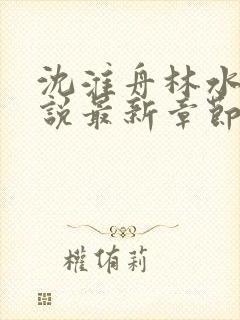 沈淮舟林水
說最新章節
權侑莉